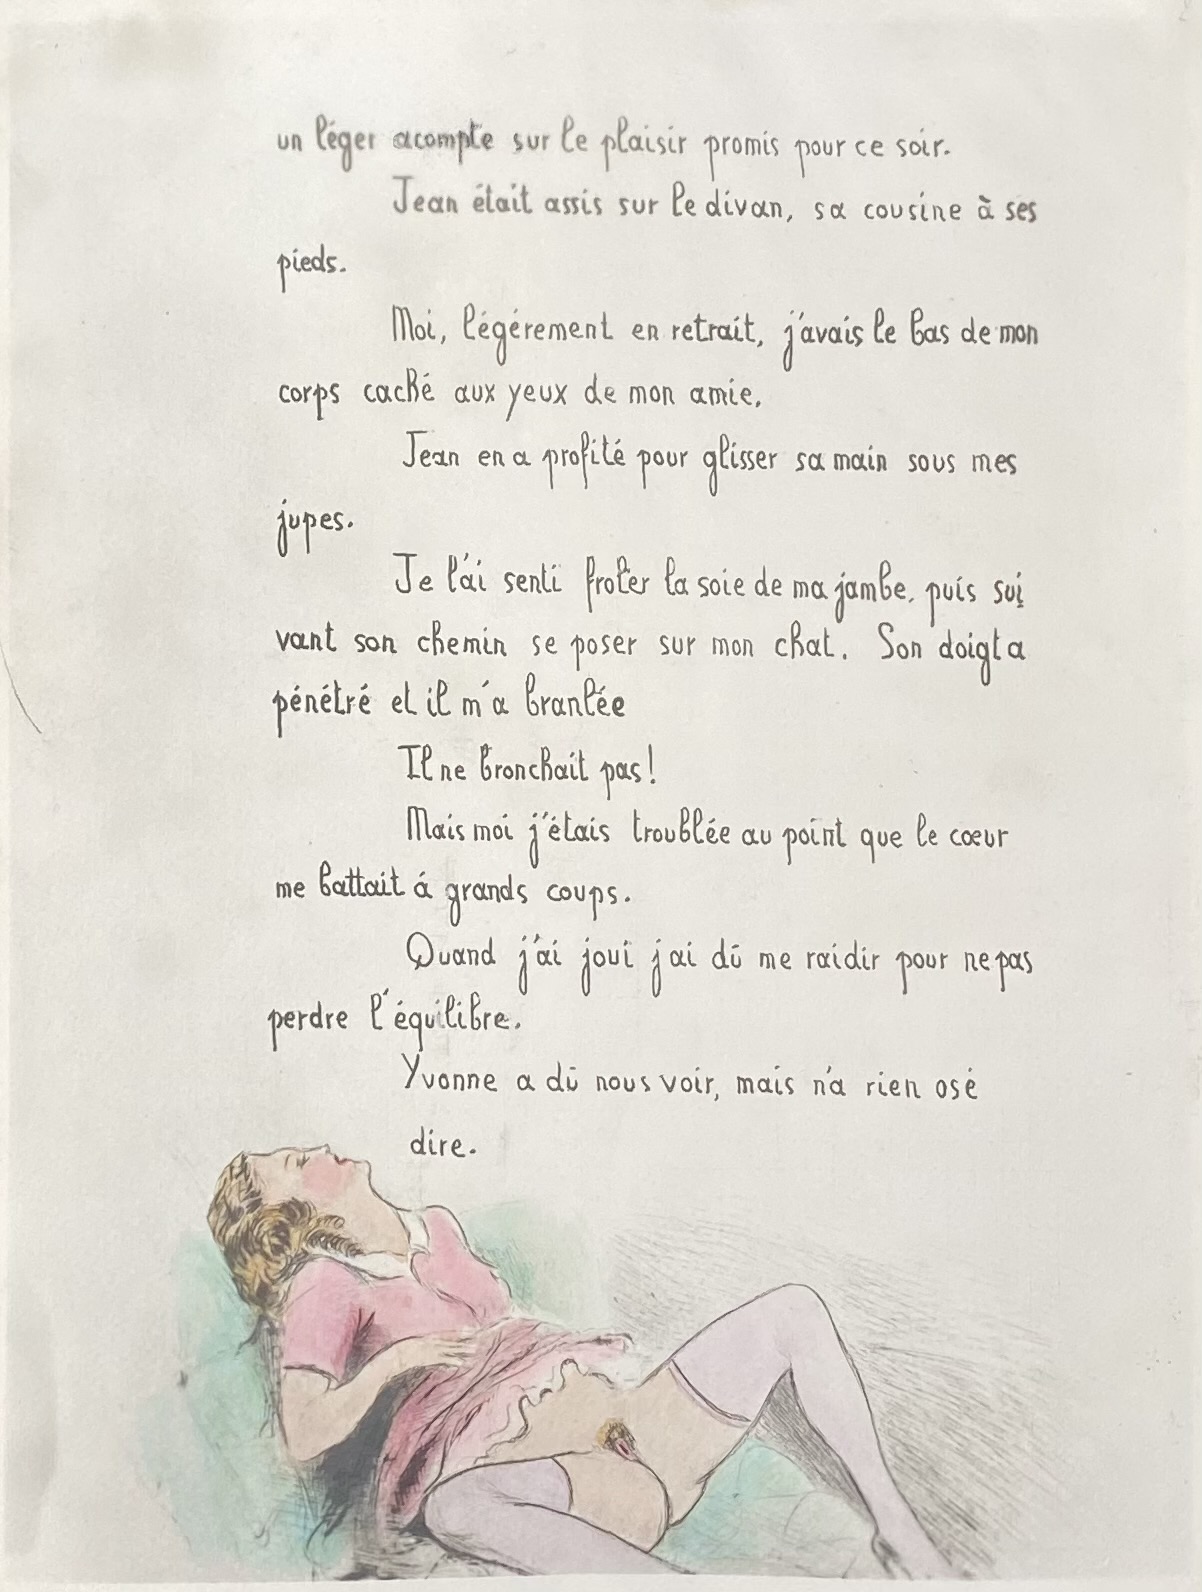 un léger acompte sur le plaisir promis pour ce soir.
Jean était assis sur le divan, sa cousine à ses
pieds.
Moi, légérement en retrait, j'avais le bas de mon
corps caché aux yeux de mon amie.
Jean en a profité pour glisser sa main sous mes
jupes.
Je l'ai senti froler la soie de ma jambe, puis sui
vant son chemin se poser sur mon chat. Son doigt a
pénétré et il m'a branlée
Il ne bronchait pas!
Mais moi j'étais troublée au point que le cœur
me battait á grands coups.
Quand j'ai joui j'ai dû me raidir pour ne pas
perdre l'équilibre.
Yvonne a dû nous voir, mais n'a rien osé
dire.